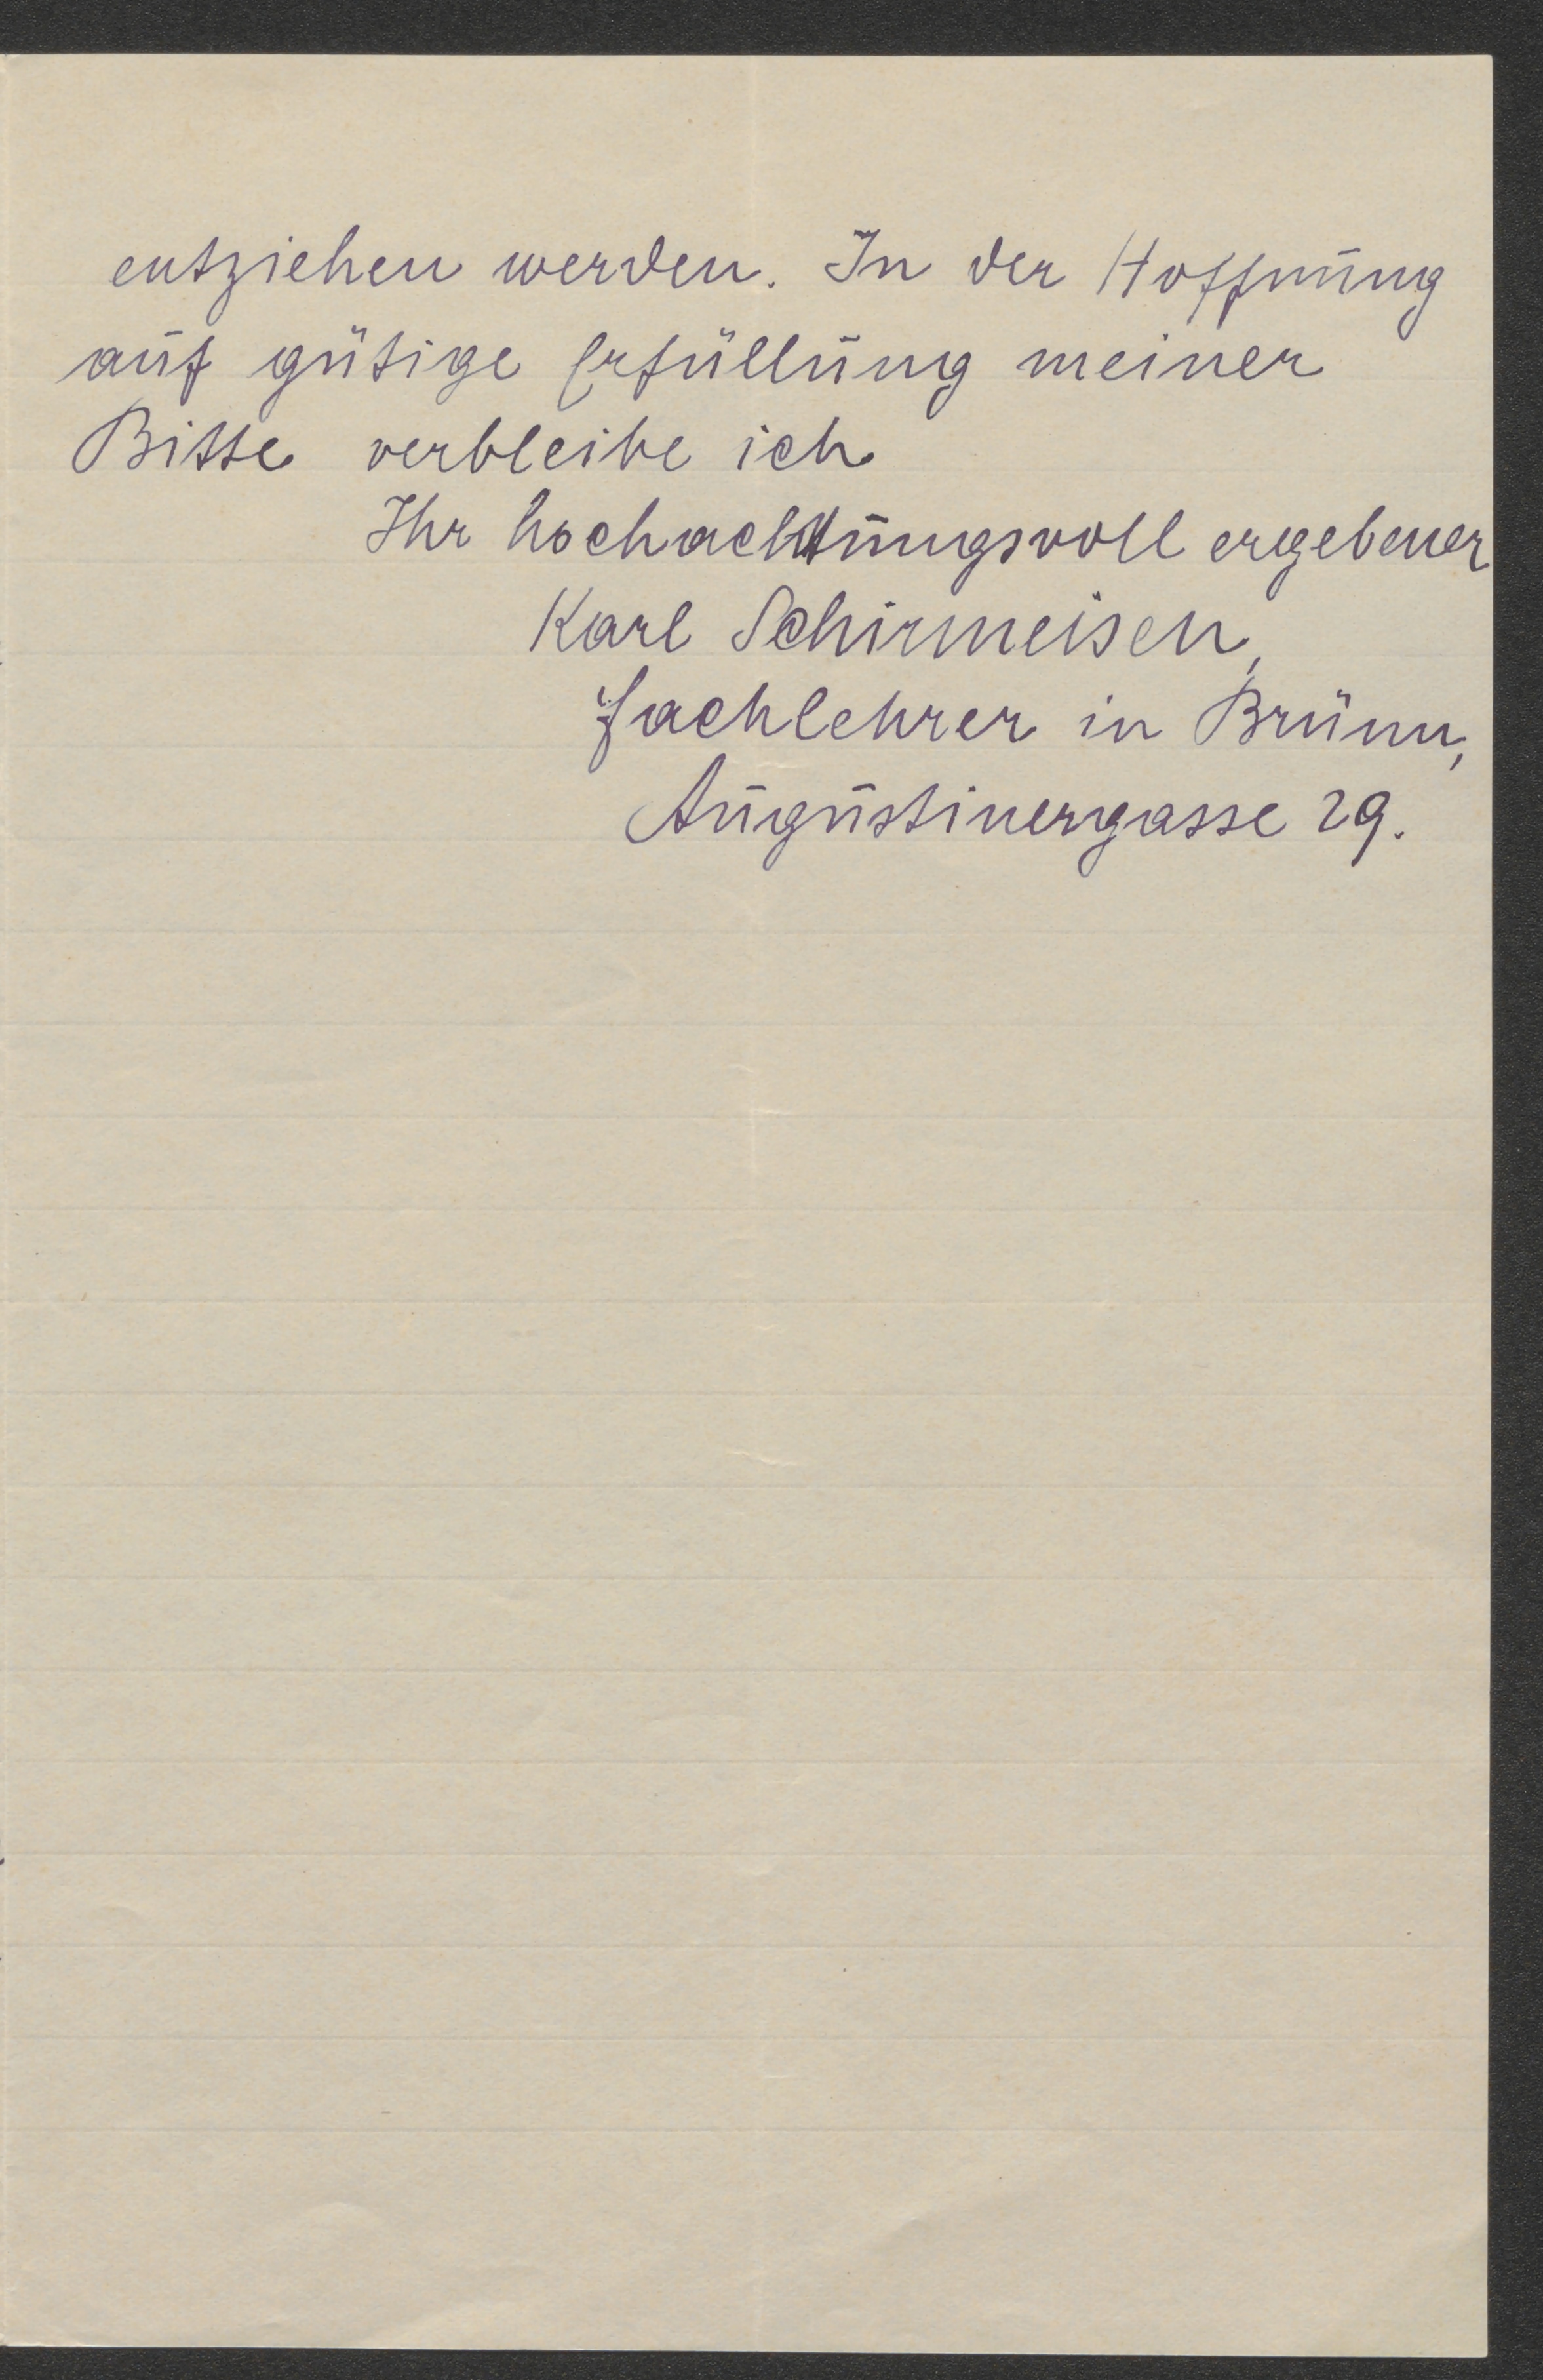 entziehen werden. In der Hoffnung
auf gütige Erfüllung meiner
Bitte verbleibe ich
Ihr hochachtungsvoll ergebener
Karl Schirmeisen,
Fachlehrer in Brünn,
Augustinergasse 29.